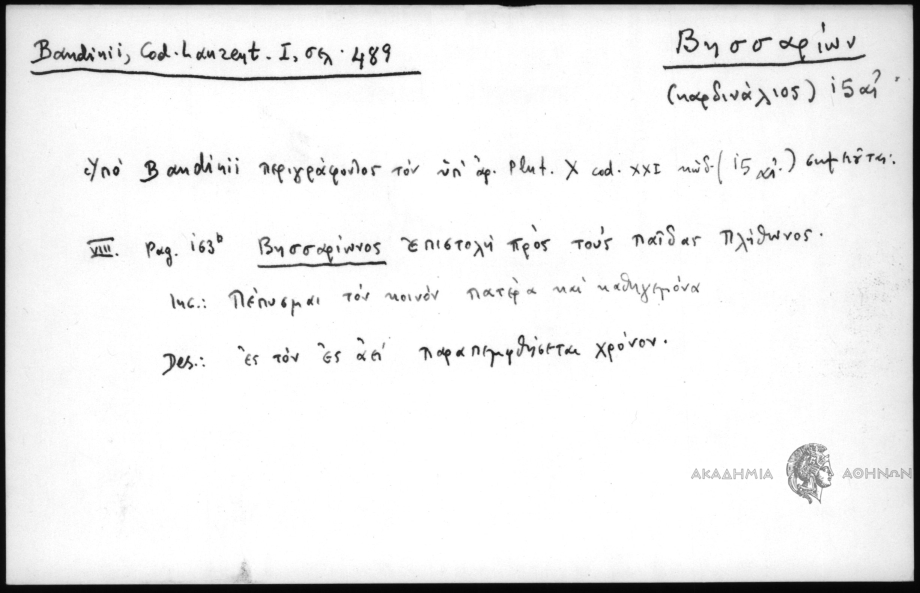 Bandinii, Cod. Laurent. I, σελ. 489
Βησσαρίων
(καρδινάλιος) ι5 αἰ.
Ὑπὸ Bandinii περιγράφοντος τὸν ὑπ' ἀρ. Plut. X cod. XXI κώδ. (ι5 αἰ.) σημειοῦται:
VIII. Pag. 163b Βησσαρίωνος ἐπιστολὴ πρὸς τοὺς παῖδας Πλήθωνος.
Inc.: Πέπυσμαι τὸν κοινὸν πατέρα καὶ καθηγεμόνα
Des.: ἐς τὸν ἐς ἀεὶ παραπεμφθήσεται χρόνον.
ΑΚΑΔΗΜΙΑ ΑΘΗΝΩΝ